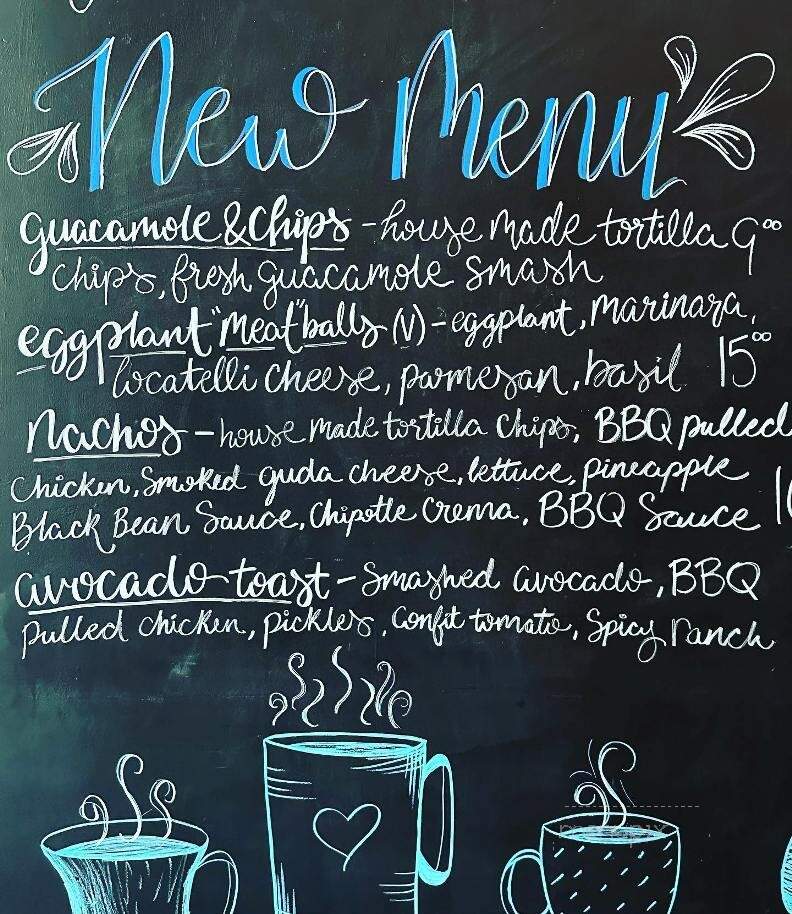 New Menu
guacamole & Chips - house made tortilla 9⁰⁰
chips, fresh guacamole smash
eggplant "Meat"balls (V) - eggplant, marinara,
locatelli cheese, parmesan, basil 15⁰⁰
nachos - house made tortilla chips, BBQ pulled
chicken, smoked guda cheese, lettuce, pineapple
Black Bean Sauce, Chipotle Crema, BBQ Sauce
avocado toast - smashed avocado, BBQ
pulled chicken, pickles, confit tomato, Spicy ranch